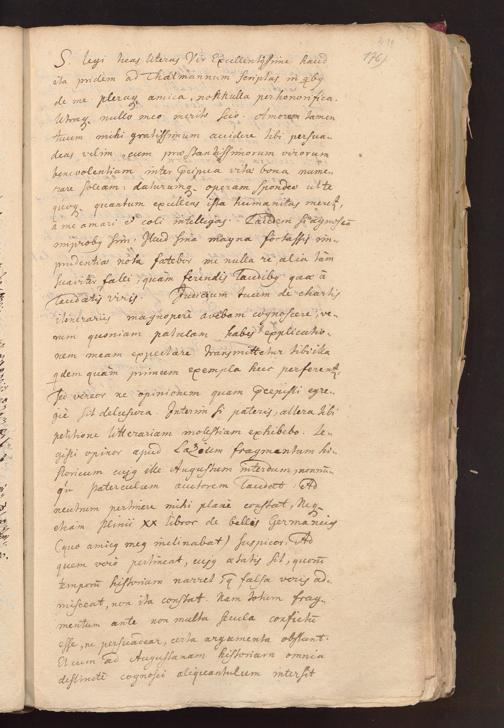 176.
S. legi tuas literas Vir Excellentissime haud
ita pridem ad Thalmannum scriptas in qbg
de me pleraq. amica, nonnulla perhonorifica.
Utraq. nullo meo merito scio. Amorem tamen
tuum mihi gratissimum accidere tibi persua-
deas velim, cum præstantissimorum virorum
benevolentiam inter præcipua vitæ bona nume-
rare soleam: daturumq. operam spondeo ut te
quoq. quantum excellens ista humanitas meret,
a me amari et coli intelligas. Laudem si agnoscã
improbus sim. Illud sine magna fortassis im-
prudentiæ nota fatebor me nulla re alia tam
suaviter falli, quam ferendis laudibg quæ à
laudatis viris. Judicium tuum de chartis
itinerariis magnopere avebam cognoscere, ve-
rum quoniam patulam habes explicatio-
nem meam expectare transmittetur tibi illa
qdem quam primum exempla huc perferent.
Sed vereor ne opinionem quam præcepisti egre-
giè sit delusura. Interim si pateris, altera tibi
petitione litterariam molestiam exhibebo. Le-
gisti opinor apud fragmentum hi-
storicum cujg ille Augustum interdum, nonnũ-
qũ paterculum autorem laudat. Ad
neutrum pertinere mihi planè constat, Neq.
etiam Plinii XX libror de bellis Germanicis
(quo amicg meg inclinabat) suspicor. Ad
quem verò pertineat, cujg ætatis sit, quorũ
temporũ historiam narret Eq falsa veris ad-
misceat, non ita constat. Nam totum frag-
mentum ante non multa secula confictũ
esse, ne persuadear, certa argumenta obstant.
Et cum ad Augustanam historiam omnia
distinctè cognosci aliquantulum intersit